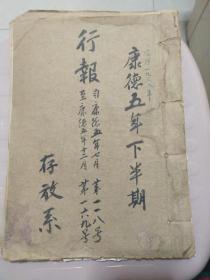 康德五年下半期
行報
自康德五年七月 第一一八号
至康德五年十二月 第一六九号
存放系